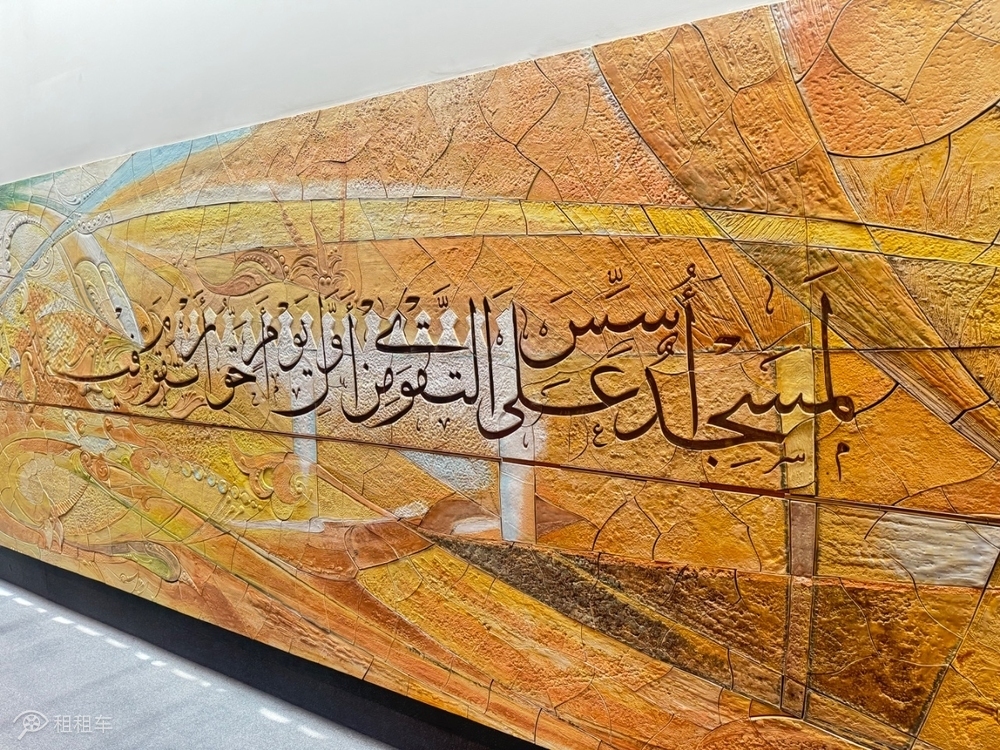 لَمَسْجِدٌ أُسِّسَ عَلَى التَّقْوَى مِنْ أَوَّلِ يَوْمٍ أَحَقُّ أَنْ تَقُومَ فِيهِ
租租车